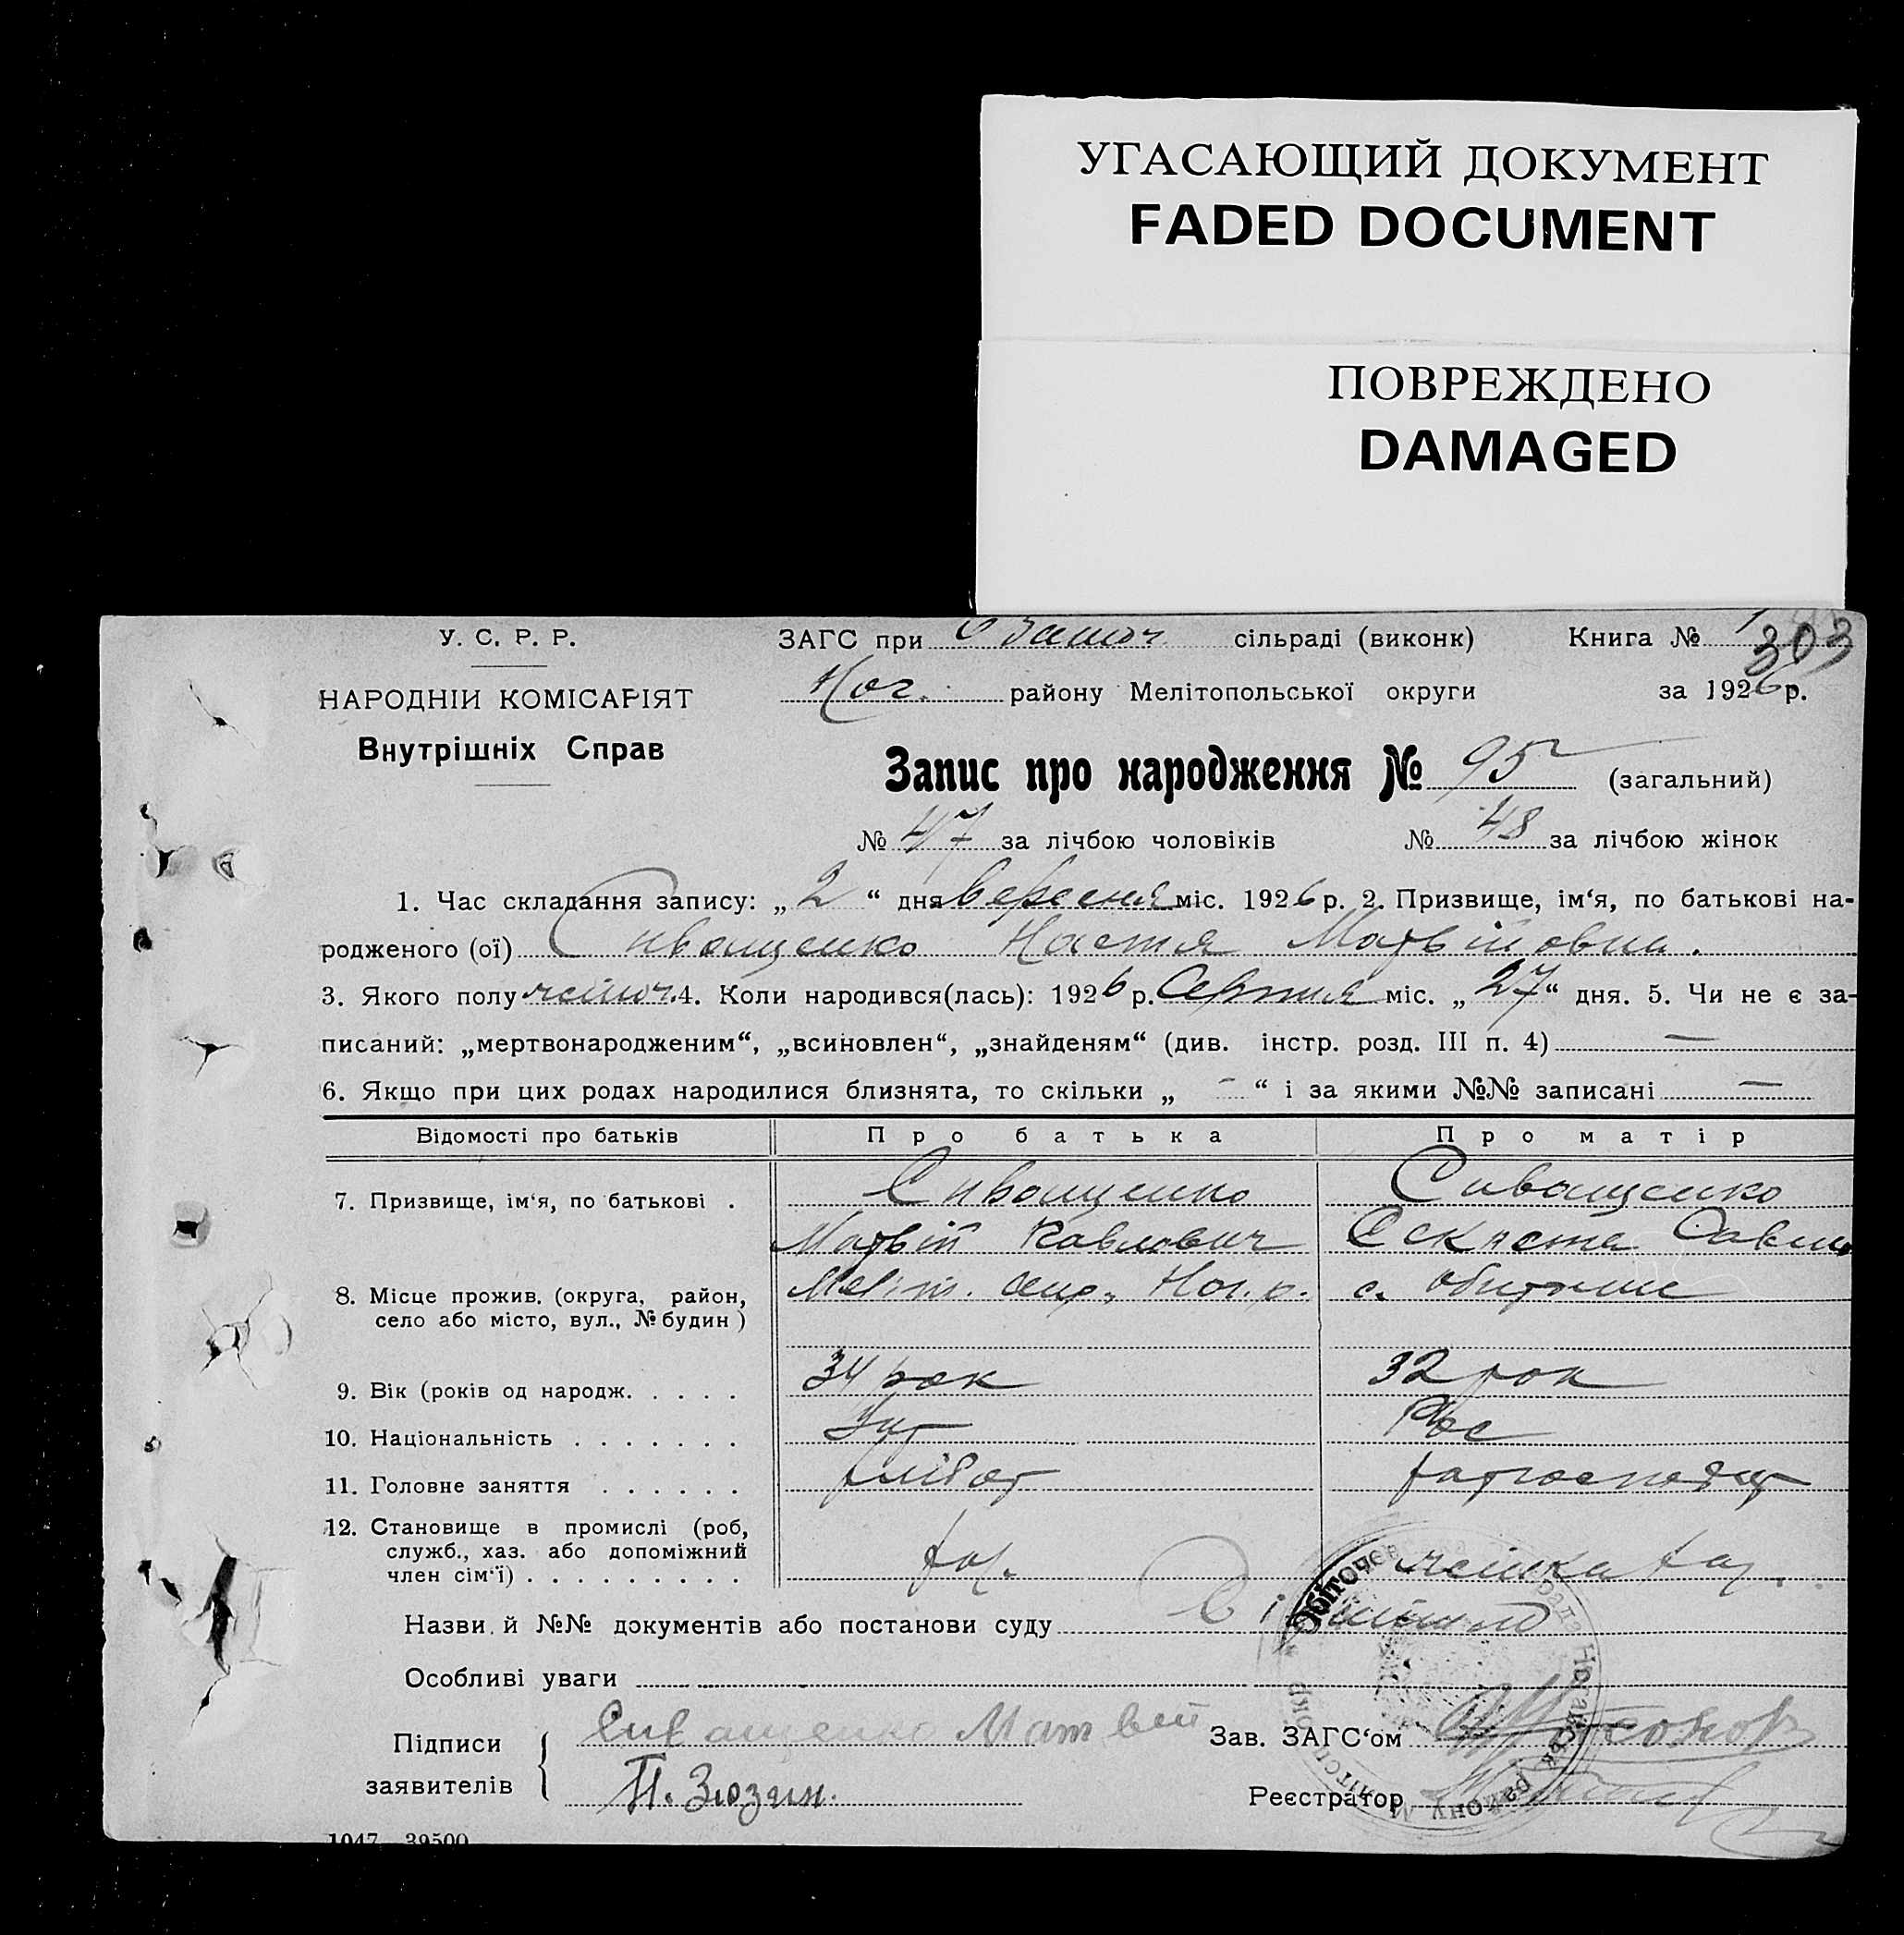 УГАСАЮЩИЙ ДОКУМЕНТ
FADED DOCUMENT
ПОВРЕЖДЕНО
DAMAGED
У. С. Р. Р. ЗАГС при сільраді (виконк) Книга № 1 303
НАРОДНІЙ КОМІСАРІЯТ Ног. району Мелітопольської округи за 1926 р.
Внутрішніх Справ
Запис про народження № 95 (загальний)
№ 47 за лічбою чоловіків № 48 за лічбою жінок
1. Час складання запису: „ 2 “ дня вересня міс. 1926 р. 2. Призвище, ім‘я, по батькові на-
родженого (ої) Сиващенко Настя Матвійовна.
3. Якого полу жіноч. 4. Коли народився(лась): 1926 р. Серпня міс. „ 27 “ дня. 5. Чи не є за-
писаний: „мертвонародженим“, „всиновлен“, „знайденям“ (див. інстр. розд. III п. 4) —
6. Якщо при цих родах народилися близнята, то скільки „ - “ і за якими №№ записані —
Відомості про батьків Про батька Про матір
7. Призвище, ім‘я, по батькові . Сиващенко Сиващенко
Матвій Павлович
8. Місце прожив. (округа, район, Меліт. окр., Ног. р. с.
село або місто, вул., № будин )
9. Вік (років од народж. . . . . 34 рок 32 рок
10. Національність . . . . . . . Укр Рос
11. Головне заняття . . . . . . хлібор
12. Становище в промислі (роб,
служб., хаз. або допоміжний
член сім‘ї) . . . . . . . . . хаз. жінка хаз.
Назви й №№ документів або постанови суду
Особливі уваги
Підписи Сиващенко Матвей Зав. ЗАГС‘ом
заявителів П. Зюзин. Реєстратор
1047 39500